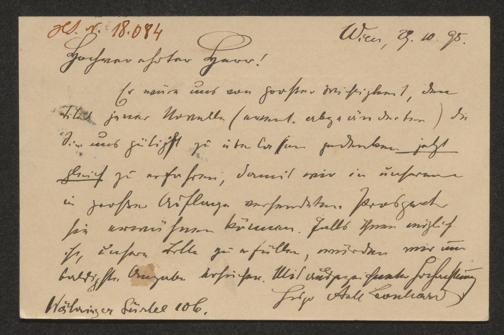 H. N. 18.084
Wien, 29.10.95.
Hochverehrter Herr!
Es wäre uns von großer Wichtigkeit, den
Titel jener Novelle (event. abgeänderten) die
Sie uns gütigst zu überlassen gedenken jetzt
gleich zu erfahren, damit wir in unserem
in großer Auflage versendeten Prospecte
sie erwähnen können. Falls Ihnen möglich
ist, unsere Bitte zu erfüllen, würden wir um
baldigste Angabe ersuchen. Mit ausgezeichneter Hochachtung
Währinger Gürtel 106.